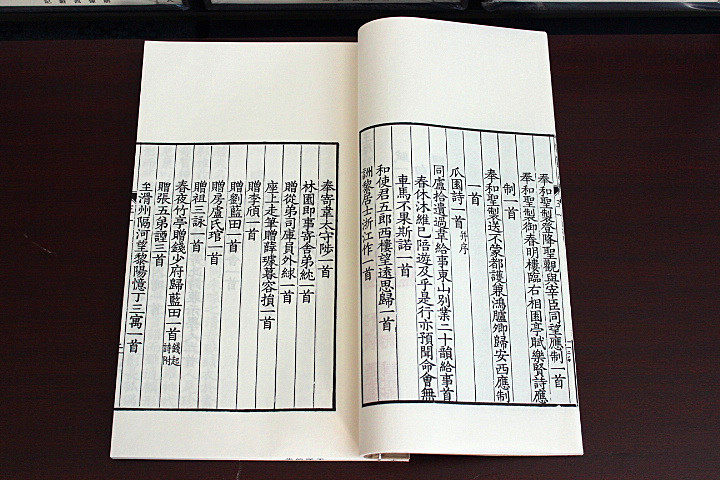 奉和聖製登降聖觀與宰臣同望應制一首
奉和聖製御春明樓臨右相園亭賦樂賢詩應
制一首
奉和聖製送不蒙都護兼鴻臚卿歸安西應制
一首
瓜園詩一首 并序
同盧拾遺過韋給事東山別業二十韻給事首
春休沐維已陪遊及乎是行亦預聞命會無
車馬不果斯諾一首
和使君五郎西樓望遠思歸一首
詶黎居士淅江作一首
奉寄韋太守陟一首
林園即事寄舍弟紞一首
贈從弟司庫員外絿一首
座上走筆贈薛璩慕容損一首
贈李頎一首
贈劉藍田一首
贈房盧氏琯一首
贈祖三詠一首
春夜竹亭贈錢少府歸藍田一首 錢起詩附
贈張五弟諲三首
至滑州隔河望黎陽憶丁三寓一首